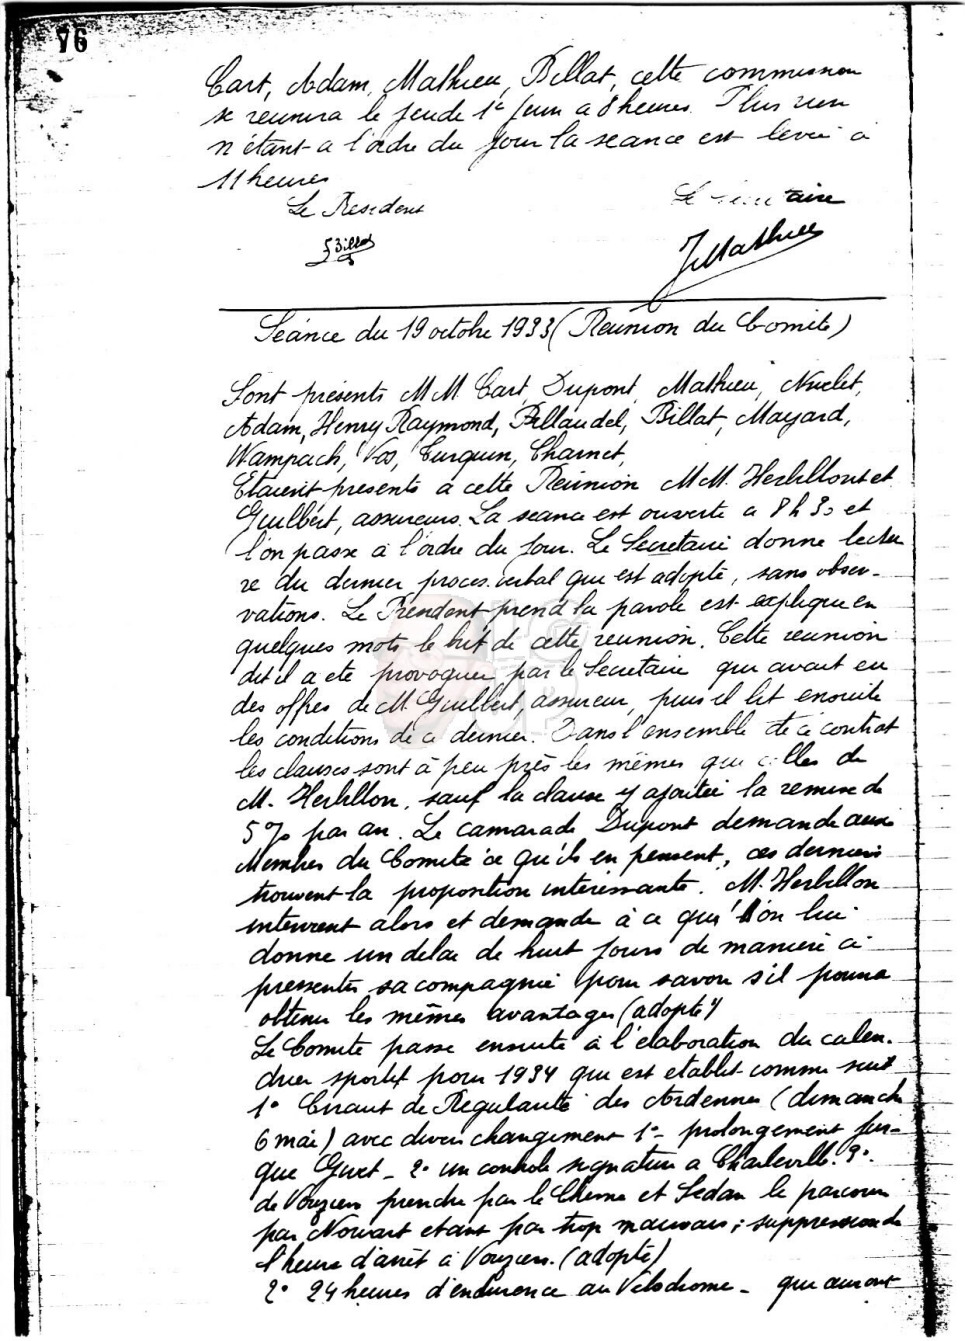 76
Cart, Adam, Mathieu, Billat, cette commission
se reunira le jeudi 1e Juin a 8 heures. Plus rien
n'étant a l'ordre du jour la seance est levée à
11 heures
Le President
Le Secretaire
Billat
J Mathieu
Séance du 19 octobre 1933 (Reunion du Comité)
Sont présents M M. Cart, Dupont, Mathieu, Nuelet,
Adam, Henry Raymond, Billaudel, Billat, Mayard,
Wampach, Vos, Turquin, Charnet,
Etaient presents a cette Réunion M M. Herbillon et
Guilbert, assureurs. La seance est ouverte a 8 h 30 et
l'on passe a l'ordre du jour. Le Secretaire donne lectu
re du dernier proces.verbal qui est adopté, sans obser-
vations. Le President prend la parole est explique en
quelques mots le but de cette reunion. Cette reunion
dit il a ete provoquer par le Secretaire qui avait eu
des offres de M. Guilbert, assureur, puis il lit ensuite
les conditions de ce dernier. Dans l'ensemble de ce contrat
les clauses sont à peu près les mêmes que celles de
M. Herbillon, sauf la clause y ajoutée la remise de
5% par an. Le camarade Dupont demande aux
Membres du Comite ce qu'ils en pensent, ces derniers
trouvent la proposition interessante. M. Herbillon
intervient alors et demande à ce qu'l'on lui
donne un delai de huit jours de maniere à
pressentir sa compagnie pour savoir s'il pourra
obtenir les mêmes avantages (adopté)
Le Comite passe ensuite à l'élaboration du calen.
drier sportif pour 1934 qui est etablit comme suit
1° Circuit de Regularité des Ardennes (dimanche
6 mai) avec divers changement 1° - prolongement jus-
que Givet - 2° un controle signature a Charleville. 3°.
de Vouziers prendre par le Chesne et Sedan le parcours
par Nouart etant par trop mauvais ; suppression de
l'heure d'arrêt à Vouziers. (adopté)
2° 24 heures d'endurence au Vélodrome - qui auront